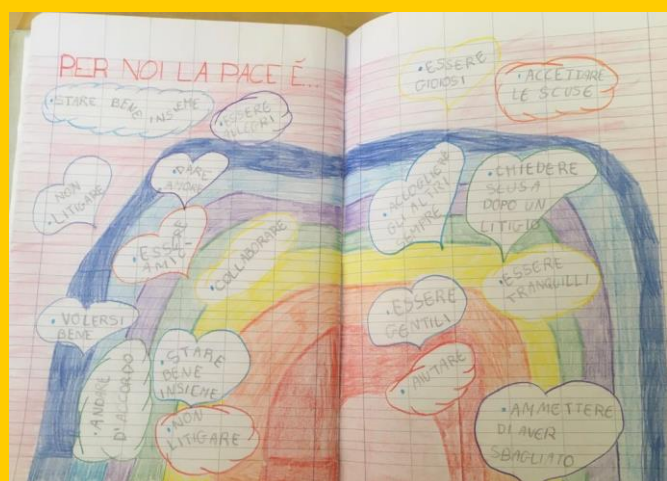 PER NOI LA PACE É...
•STARE BENE INSIEME
•ESSERE
ALLEGRI
•NON
LITIGARE
•DARE
AMORE
•ESSERE
AMICI
•COLLABORARE
•VOLERSI
BENE
•ANDARE
D'ACCORDO
•STARE
BENE
INSIEME
•NON
LITIGARE
•ESSERE
GIOIOSI
•ACCETTARE
LE SCUSE
GLI ALTRI
SEMPRE
•CHIEDERE
SCUSA
DOPO UN
LITIGIO
•ESSERE
TRANQUILLI
•ESSERE
GENTILI
•AIUTARE
•AMMETTERE
DI AVER
SBAGLIATO